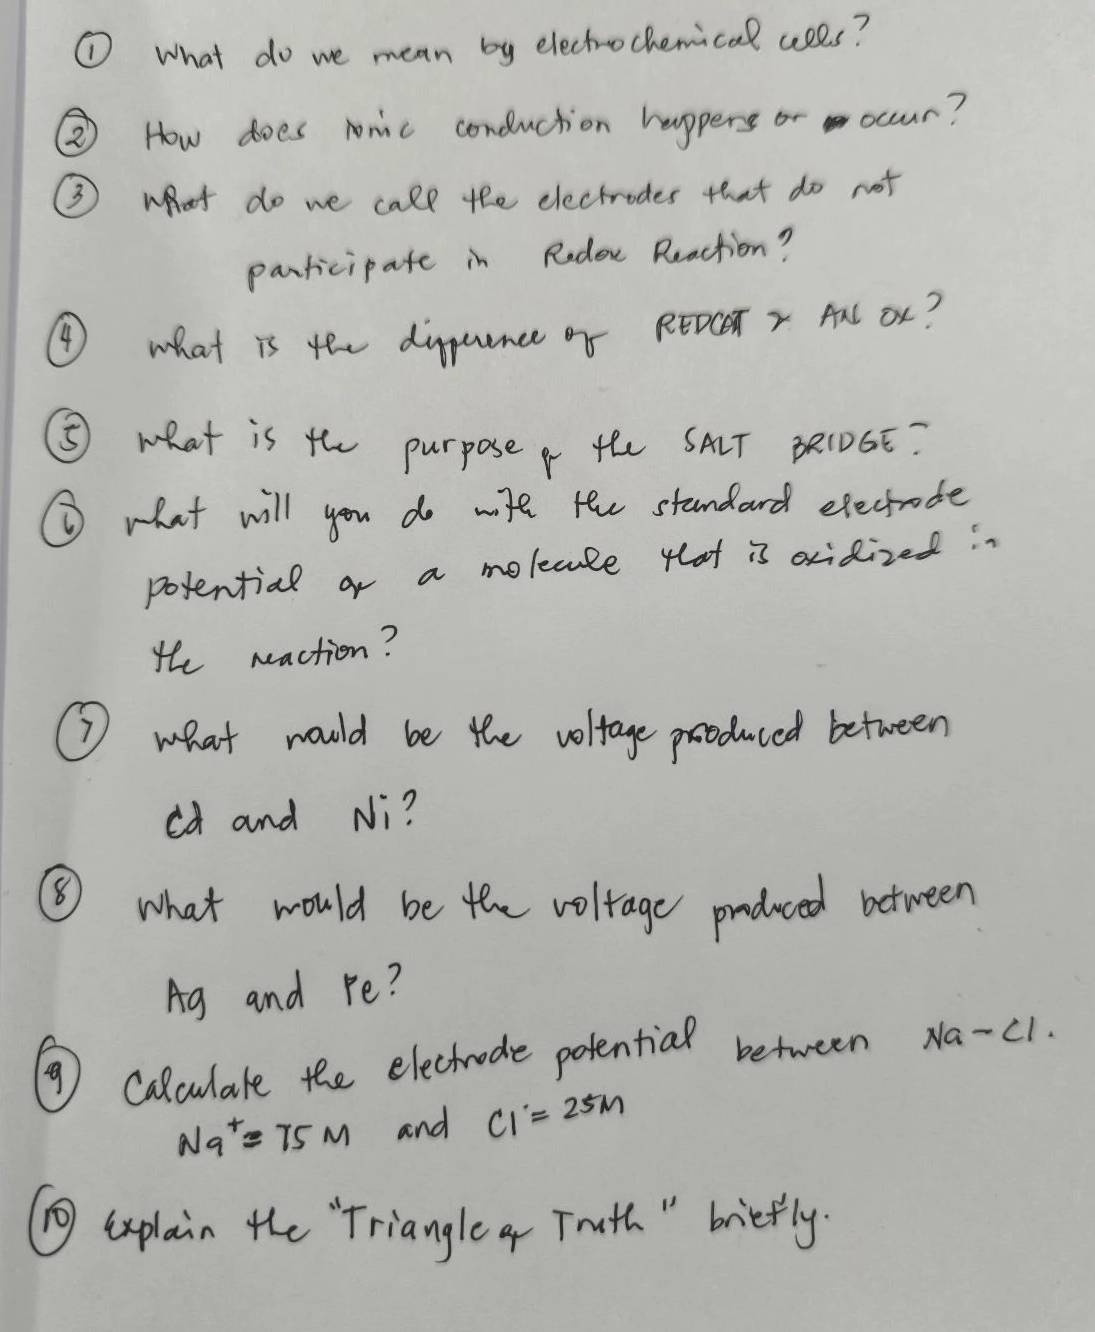 ① What do we mean by electrochemical cells?
② How does ionic conduction happens or occur?
③ What do we call the electrodes that do not
participate in Redox Reaction?
④ what is the difference of REDCAT & AN OX?
⑤ what is the purpose of the SALT BRIDGE?
⑥ what will you do with the standard electrode
potential of a molecule that is oxidized in
the reaction?
⑦ what would be the voltage produced between
Cd and Ni?
⑧ What would be the voltage produced between
Ag and Fe?
⑨ Calculate the electrode potential between Na-Cl.
Na⁺ = 75 M and Cl⁻ = 25M
⑩ Explain the "Triangle of Truth" briefly.